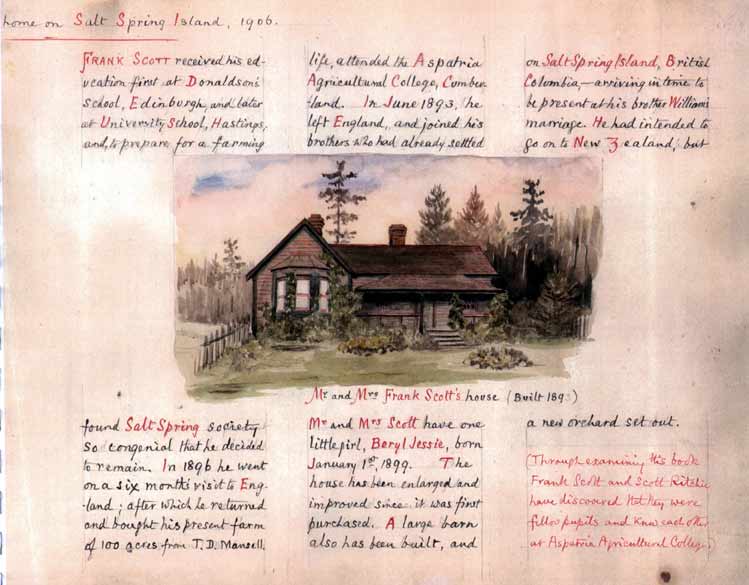 home on Salt Spring Island, 1906.
FRANK SCOTT received his ed-
ucation first at Donaldson's
school, Edinburgh, and later
at University School, Hastings,
and, to prepare for a farming
life, attended the Aspatria
Agricultural College, Cumber-
land. In June 1893, he
left England, and joined his
brothers who had already settled
on Salt Spring Island, British
Columbia,—arriving in time to
be present at his brother William's
marriage. He had intended to
go on to New Zealand; but
Mr and Mrs Frank Scott's house (Built 189 )
found Salt Spring society
so congenial that he decided
to remain. In 1896 he went
on a six months visit to Eng-
land; after which he returned
and bought his present farm
of 100 acres from T. D. Mansell.
Mr and Mrs Scott have one
little girl, Beryl Jessie, born
January 1st, 1899. The
house has been enlarged and
improved since it was first
purchased. A large barn
also has been built, and
a new orchard set out.
(Through examining this book
Frank Scott and Scott Ritchie
have discovered that they were
fellow pupils and knew each other
at Aspatria Agricultural College.)